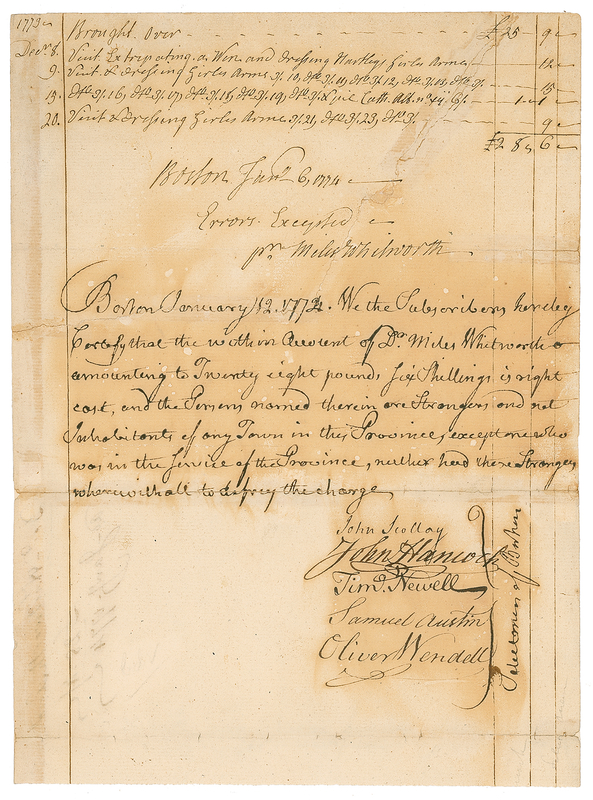 1773
Brought Over - - - £25 - 9 -
Decr. 8. Visit Extirpating a Wen and dressing Hartleys Girles Arme - 12 -
9. Visit & Dressing Girles Arme Do. 10, Do. 11, Do. 12, Do. 13, Do. - 15 -
15. Do. 16, Do. 17, Do. 18, Do. 19, Do. & - 1 - 1 -
20. Visit & Dressing Girles Arme 21, Do. 23, Do. - 9 -
£28 " 6 -
Boston Janr. 6, 1774
Errors Excepted
pr. Miles Whitworth
Boston January 12. 1774. We the Subscribers hereby
Certify that the within Account of Dr. Miles Whitworth
amounting to Twenty eight pounds six Shillings is right
cast, and the Persons named therein are Strangers and not
Inhabitants of any Town in this Province, except one who
was in the Service of the Province, neither had these Strangers
wherewithall to defrey the charge
John Scollay
John Hancock
Timo. Newell
Samuel Austin
Oliver Wendell
Selectmen of Boston